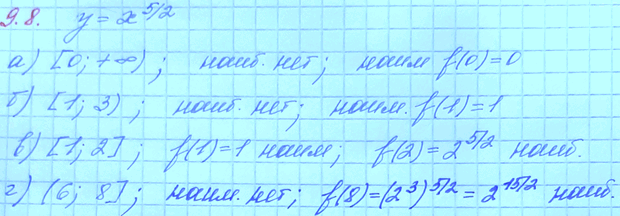 9.8. y = x^5/2
а) [0; +∞); наиб. нет; наим f(0)=0
б) [1; 3); наиб. нет; наим. f(1)=1
в) [1; 2]; f(1)=1 наим; f(2)=2^5/2 наиб.
г) (6; 8]; наим. нет; f(8)=(2^3)^5/2=2^15/2 наиб.